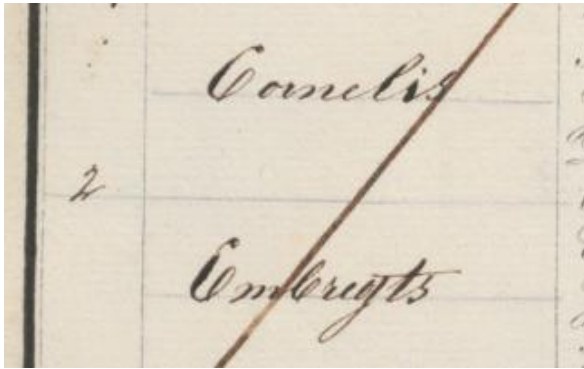 Cornelis
2
Embregts